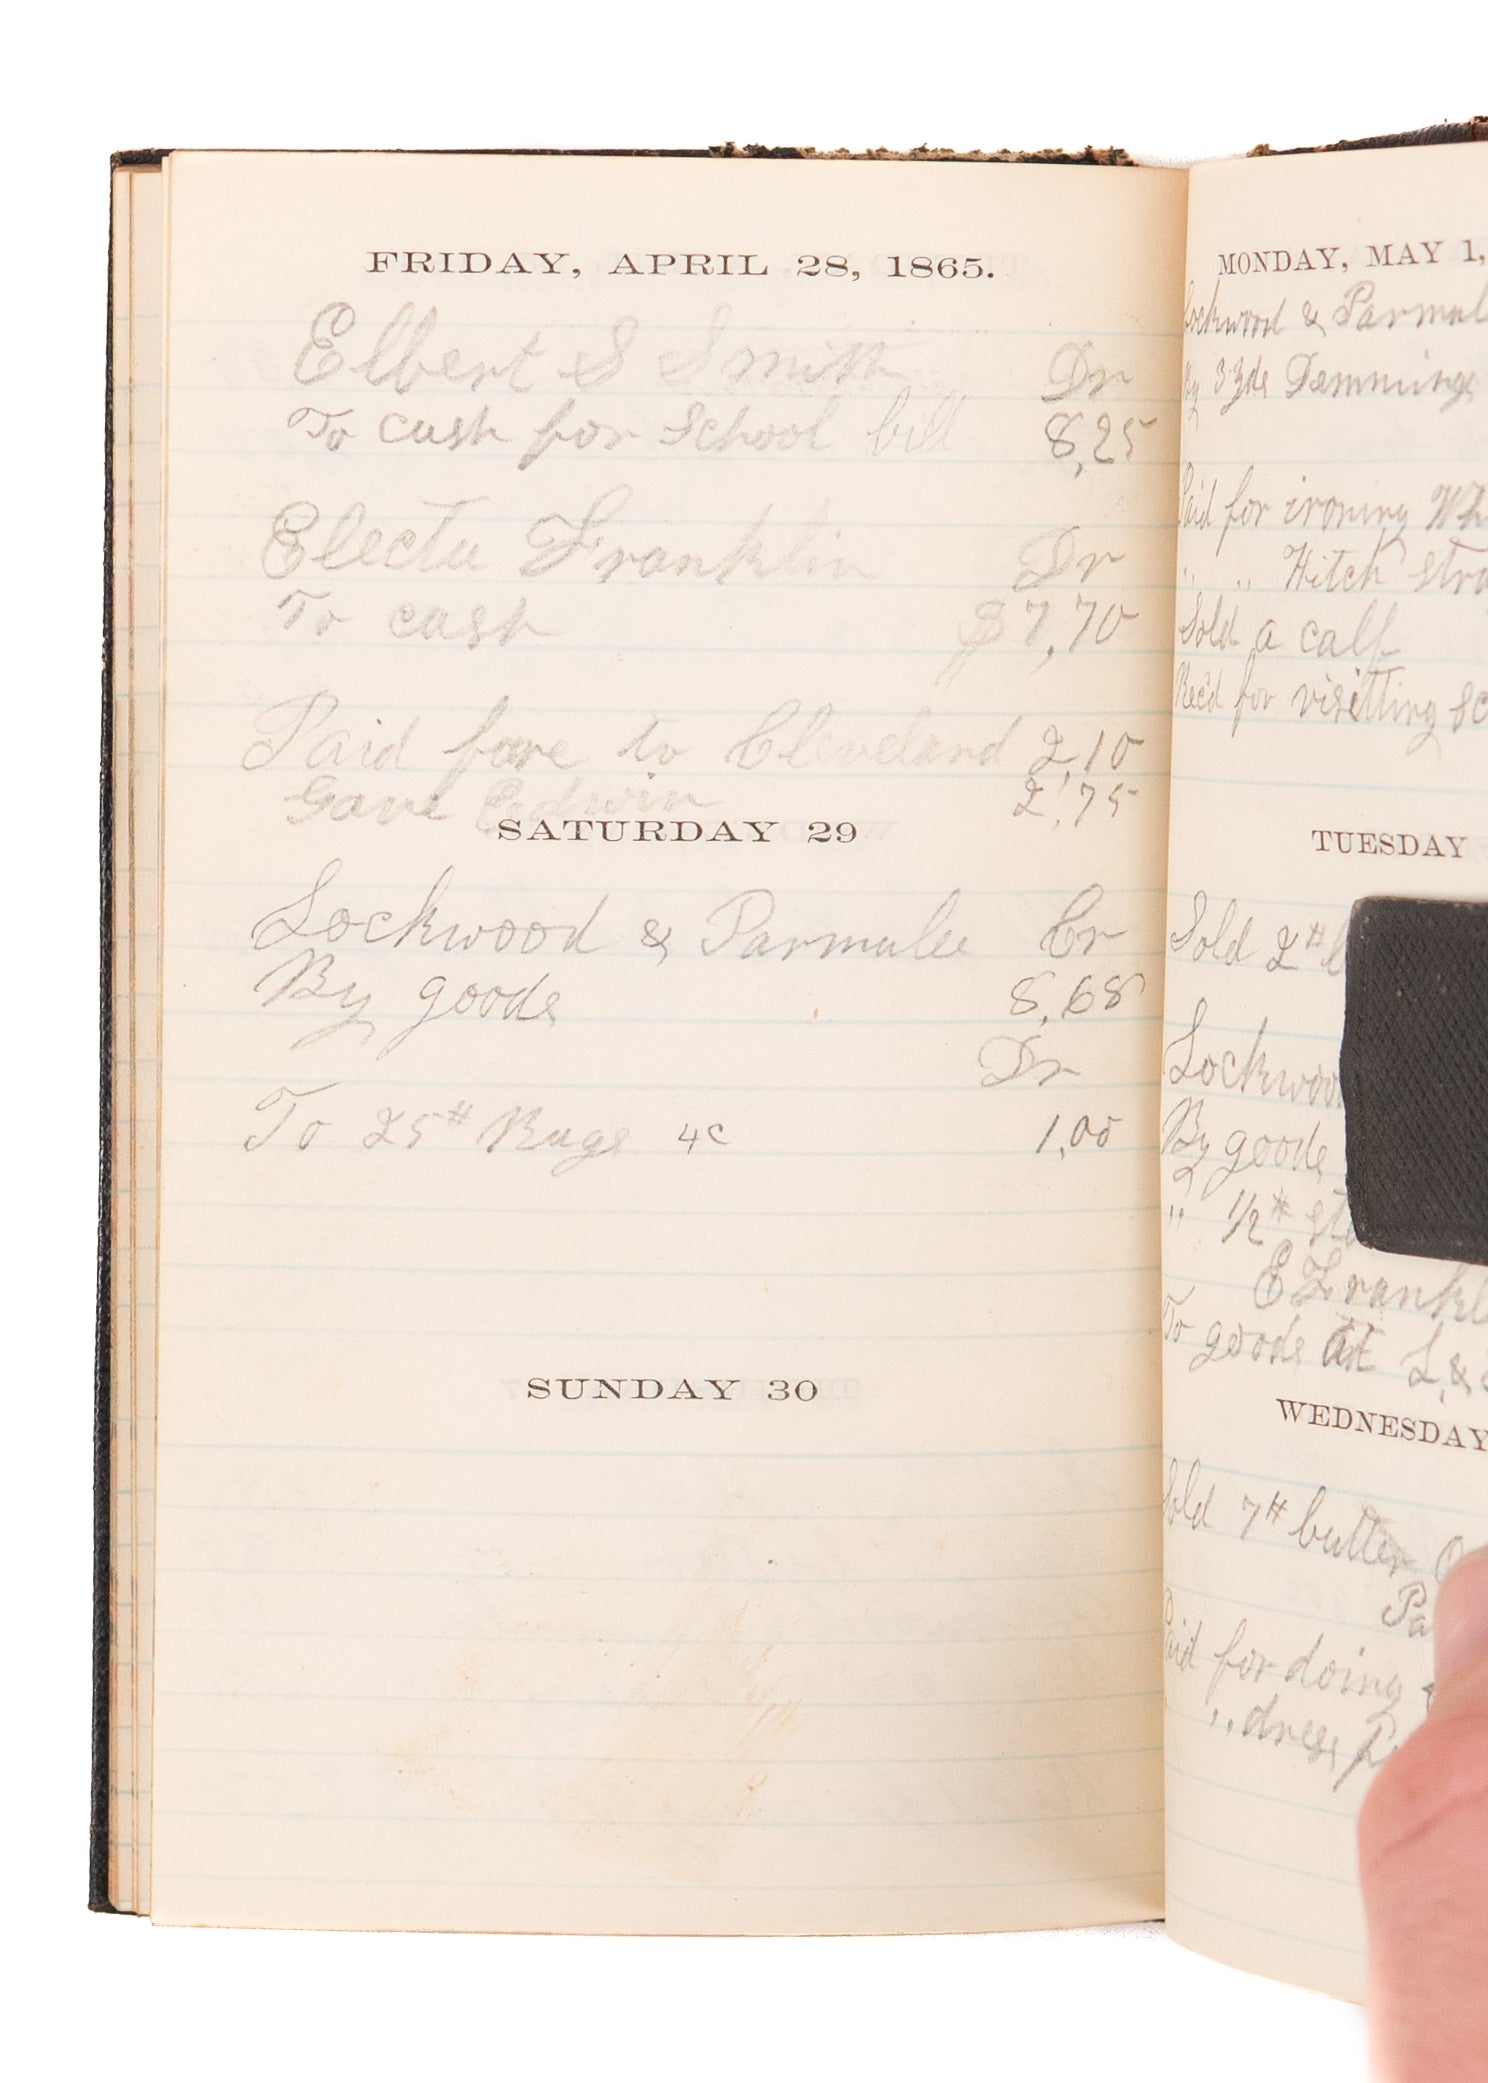 FRIDAY, APRIL 28, 1865.
Elbert S Smith Dr
To cash for School bill 8,25
Electa Franklin Dr
To cash $7,70
Paid fare to Cleveland 2,10
Gave Edwin 2,75
SATURDAY 29
Lockwood & Parmalee Cr
By goods 8,68
Dr
To 25# Rags 4c 1,00
SUNDAY 30
MONDAY, MAY 1,
Lockwood & Parmale
By 3 yds Demmings
Paid for ironing Wh
" " Hitch stra
Sold a calf
Rec'd for visitting sc
TUESDAY
Sold 2# b
Lockwoo
By goods
" 1/2# st
E Frankl
To goods at L, &
WEDNESDAY
Sold 7# butter
Pa
Paid for doing
" dress